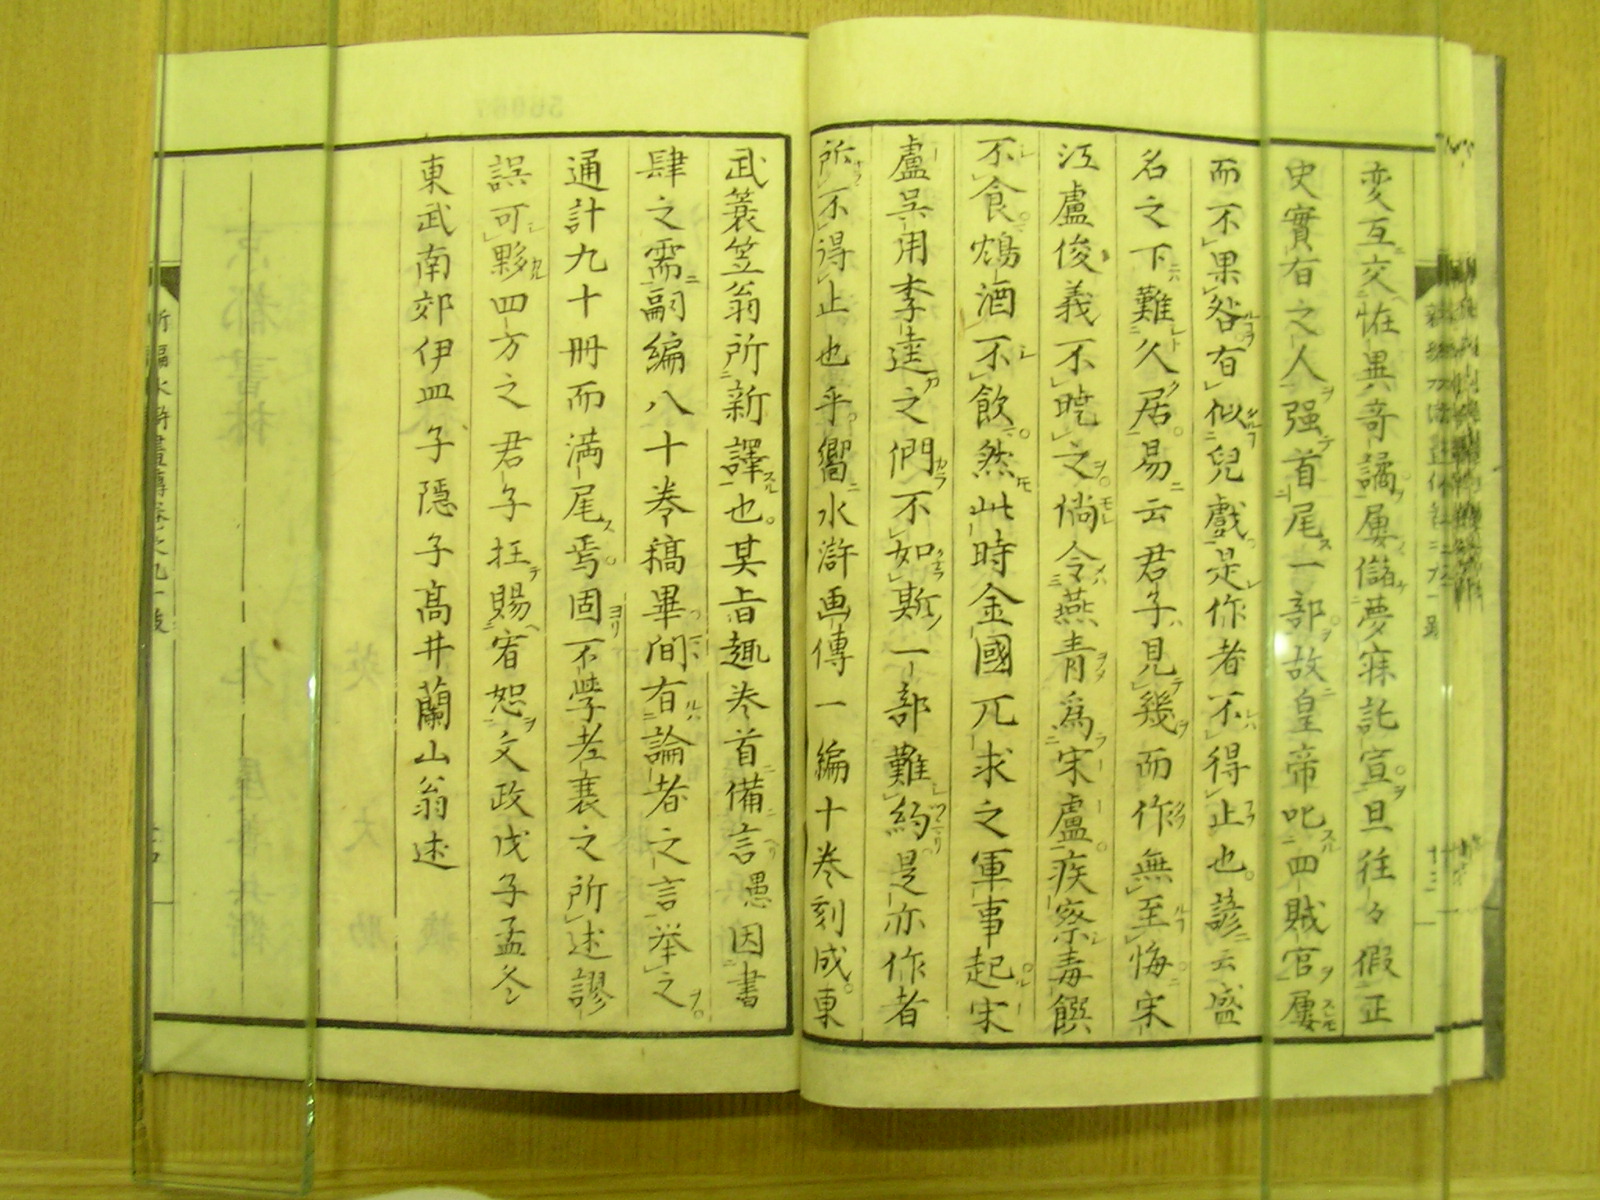 変互交恠異奇譎屢儲夢寐託宣且往々假正
史實有之人强首尾一部故皇帝叱四賊官屢
而不果咎有似兒戲是作者不得止也諺云盛
名之下難久居易云君子見幾而作無至悔宋
江盧俊義不暁之倘令燕青爲宋盧疾察毒饌
不食鴆酒不飲然此時金國兀求之軍事起宋
盧呉用李逵之們不如斯一部難約是亦作者
所不得止也乎嚮水滸画傳一編十巻刻成東
武蓑笠翁所新譯也其旨趣巻首備言愚因書
肆之需嗣編八十巻稿畢間有論者之言举之
通計九十冊而満尾焉固不学老衰之所述謬
誤可夥四方之君子枉賜宥恕文政戊子孟冬
東武南郊伊皿子隠子高井蘭山翁述